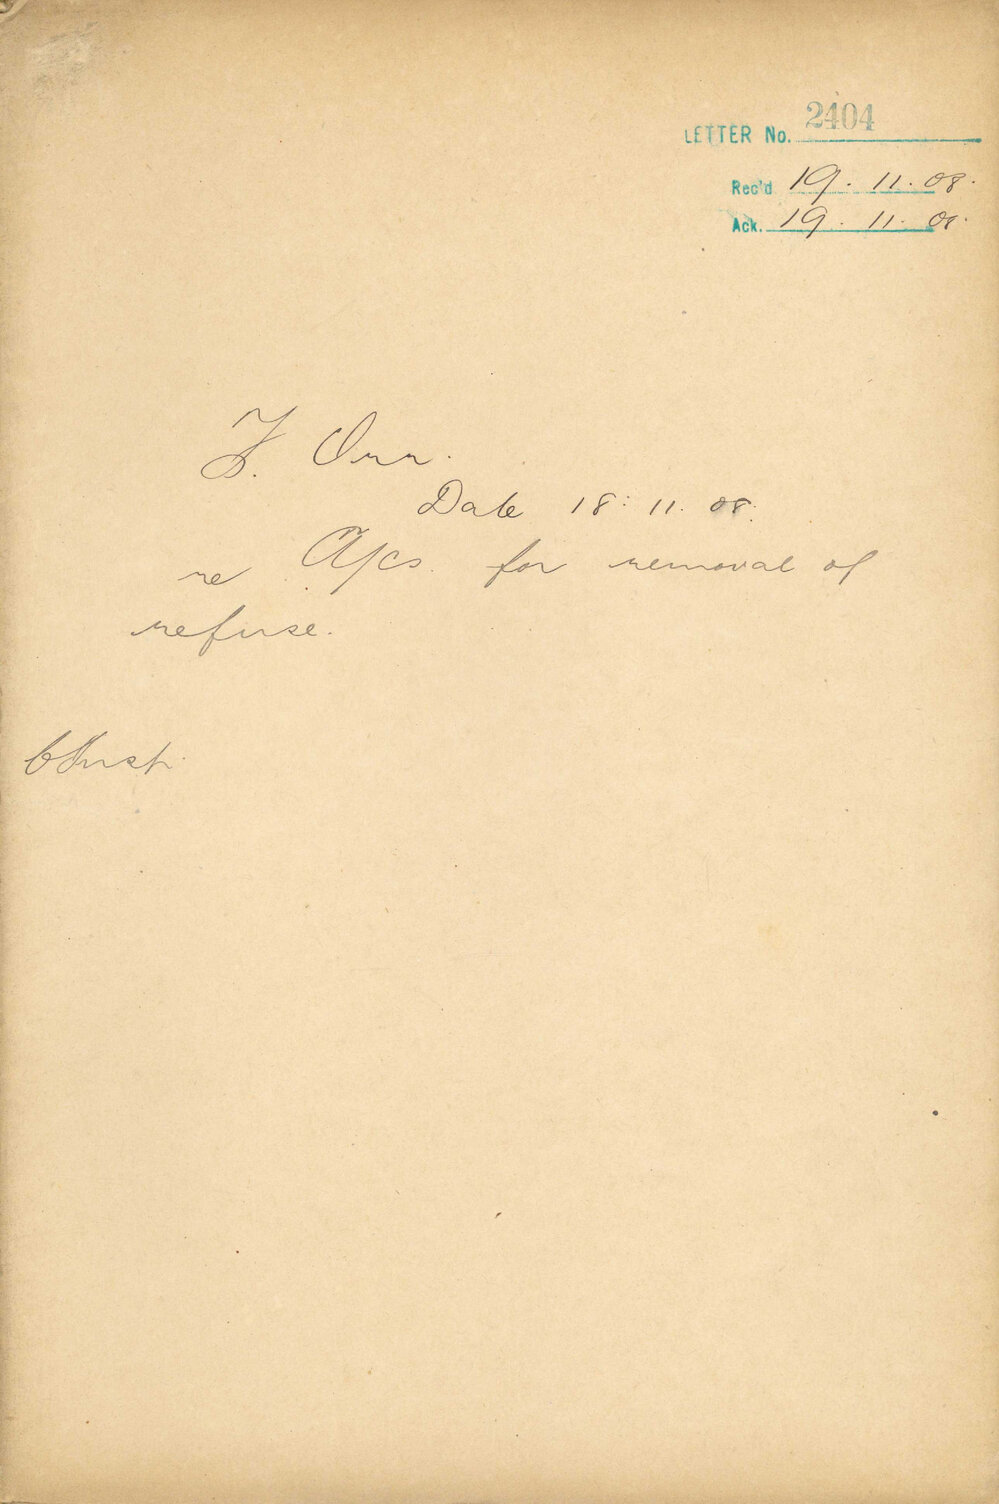 LETTER No. 2404
Rec'd 19. 11. 08.
Ack. 19. 11. 08.
F. Orr.
Date 18. 11. 08.
re A/cs. for removal of
refuse.